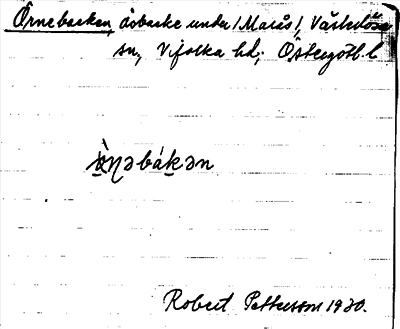 Örnebacken, åsbacke under /Marås/, Västerlösa
sn, Vifolka hd; Östergötl. l.
ö̀ŋəbákən
Robert Pettersson 1930.